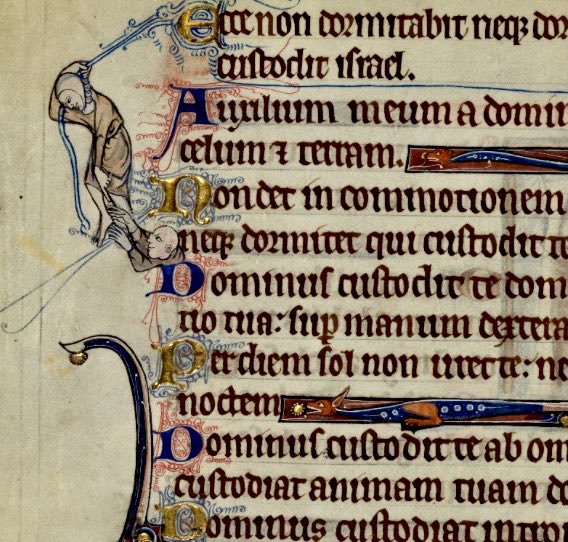 Ecce non dormitabit neqꝫ dor
custodit israel.
Auxilium meum a domi
celum ⁊ terram.
Non det in commotionem
neqꝫ dormitet qui custodit te
Dominus custodit te dom
tio tua: suꝑ manum dextera
Per diem sol non uret te: ne
noctem
Dominus custodit te ab om
custodiat animam tuam do
Dominus custodiat intro